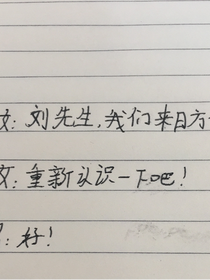 女：刘先生，我们来日方
女：重新认识一下吧！
：好！